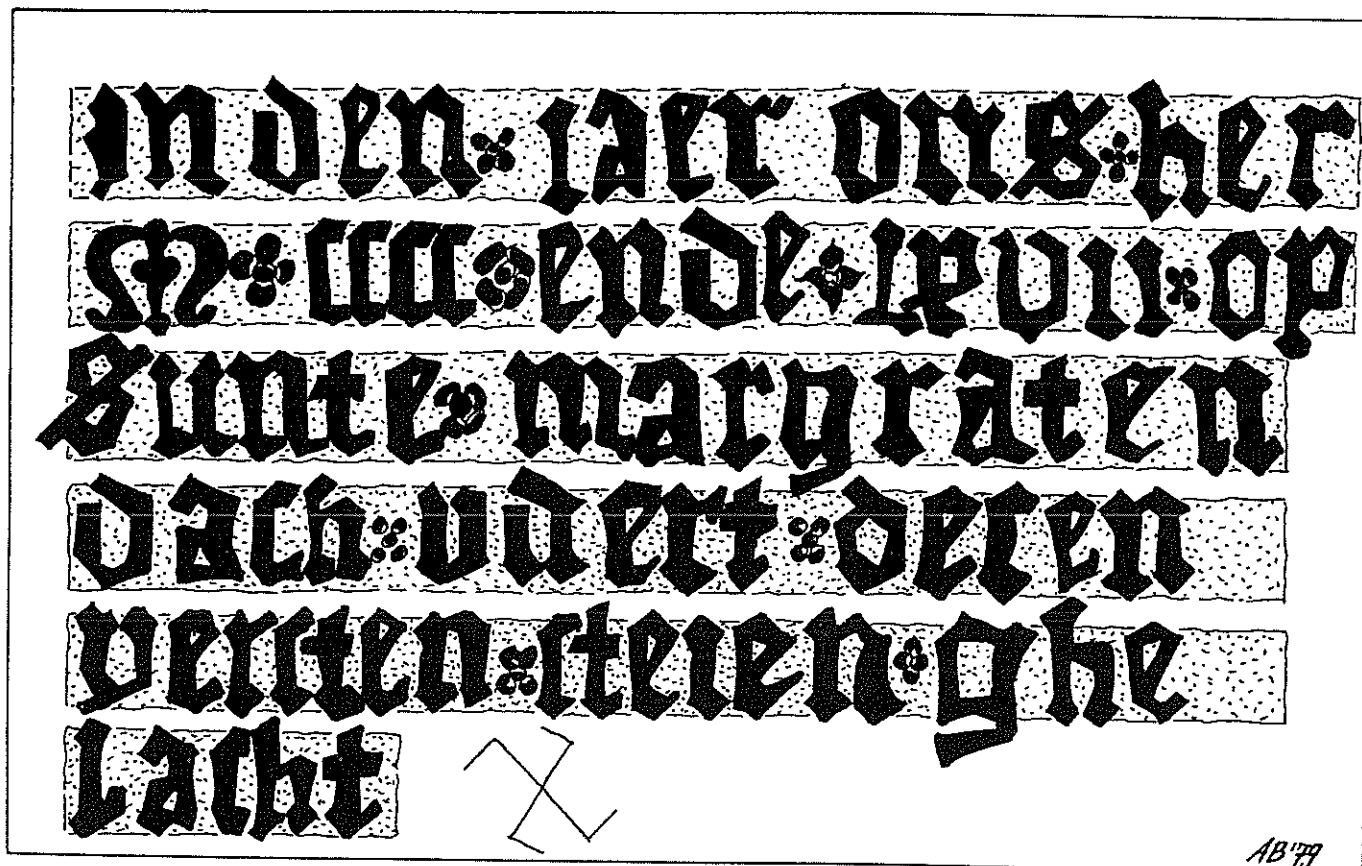 in den jaer ons her
M cccc ende lxvii op
sunte margraten
dach wert deren
yersten steien ghe
lacht
AB'79